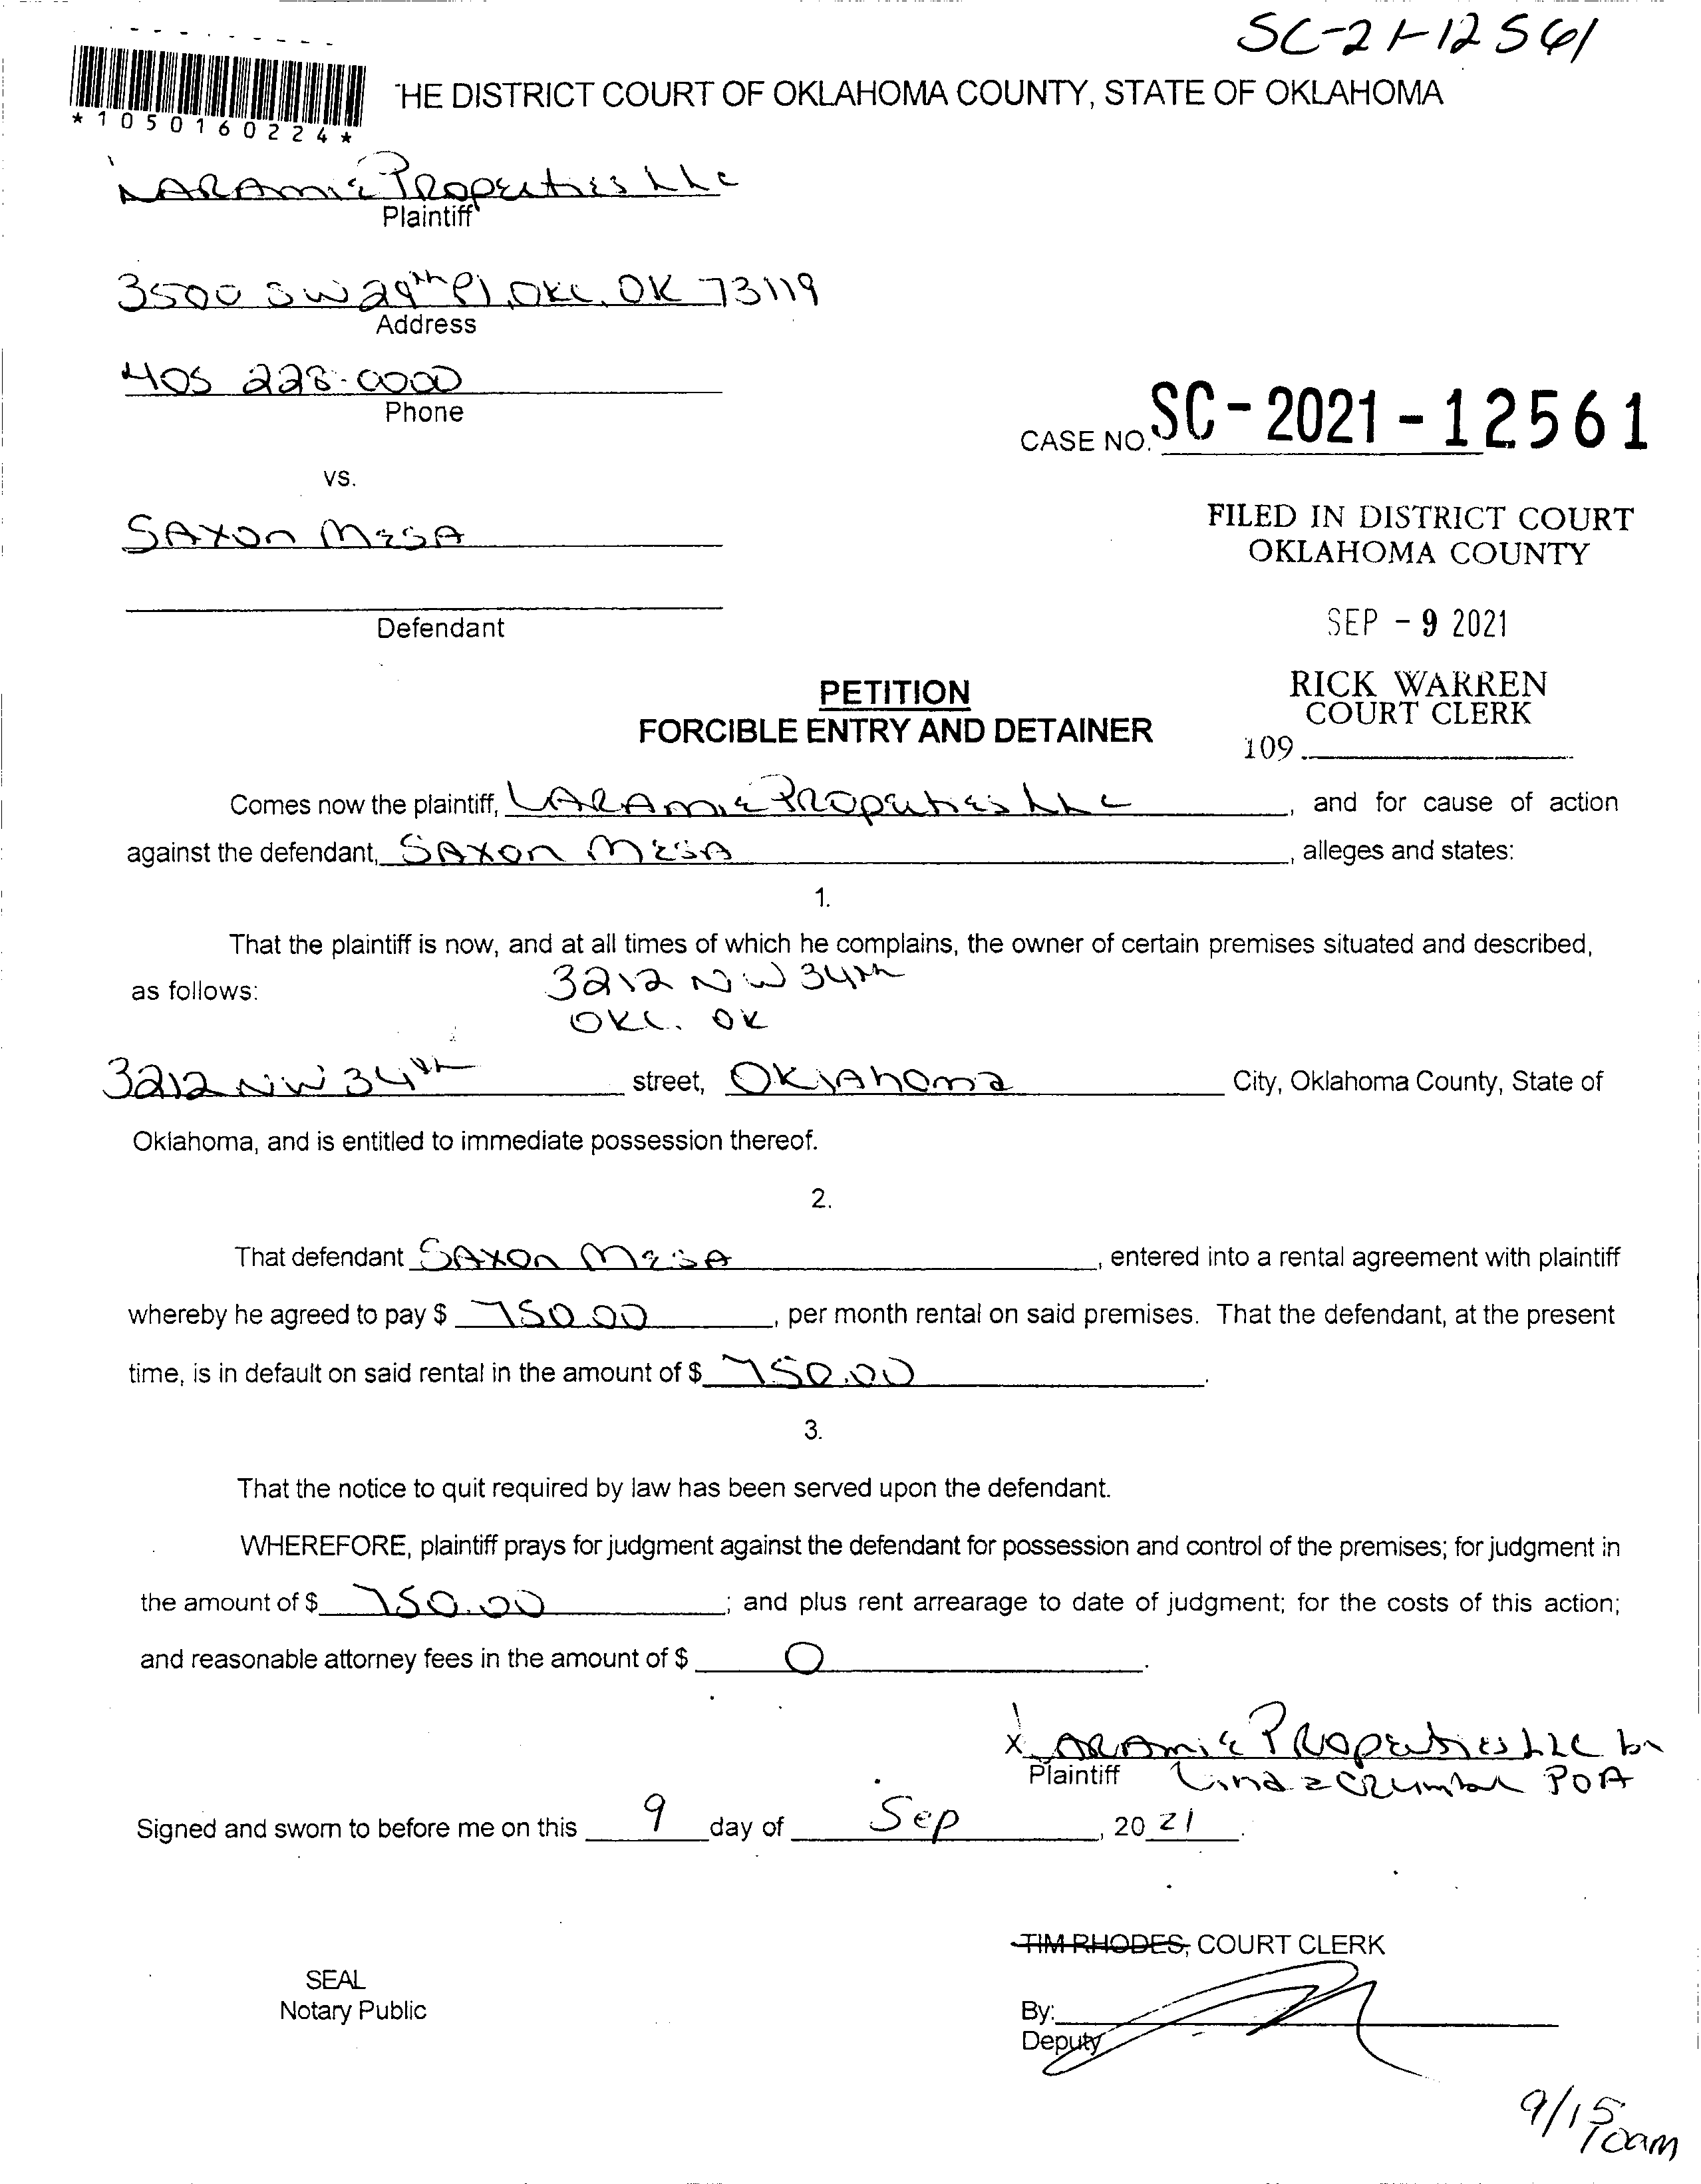 SC-21-12561
*1050160224*
'HE DISTRICT COURT OF OKLAHOMA COUNTY, STATE OF OKLAHOMA
LARAmiE PROPErties LLc
Plaintiff
3500 SW 29th Pl, OKC, OK 73119
Address
405 228-0000
Phone
CASE NO. SC-2021-12561
vs.
SAXON MESA
Defendant
FILED IN DISTRICT COURT
OKLAHOMA COUNTY
SEP - 9 2021
RICK WARREN
COURT CLERK
109
PETITION
FORCIBLE ENTRY AND DETAINER
Comes now the plaintiff, LARAmiE PROPErties LLc, and for cause of action
against the defendant, SAXON MESA, alleges and states:
1.
That the plaintiff is now, and at all times of which he complains, the owner of certain premises situated and described,
as follows: 3212 NW 34th
OKC. OK
3212 NW 34th street, OKlAhoma City, Oklahoma County, State of
Oklahoma, and is entitled to immediate possession thereof.
2.
That defendant SAXON MESA, entered into a rental agreement with plaintiff
whereby he agreed to pay $ 750.00, per month rental on said premises. That the defendant, at the present
time, is in default on said rental in the amount of $ 750.00.
3.
That the notice to quit required by law has been served upon the defendant.
WHEREFORE, plaintiff prays for judgment against the defendant for possession and control of the premises; for judgment in
the amount of $ 750.00; and plus rent arrearage to date of judgment; for the costs of this action;
and reasonable attorney fees in the amount of $ 0.
X LARAmiE PROPErties LLC by
Plaintiff Linda Crumbar POA
Signed and sworn to before me on this 9 day of Sep, 20 21.
TIM RHODES, COURT CLERK
SEAL
Notary Public
By:
Deputy
9/15
10am